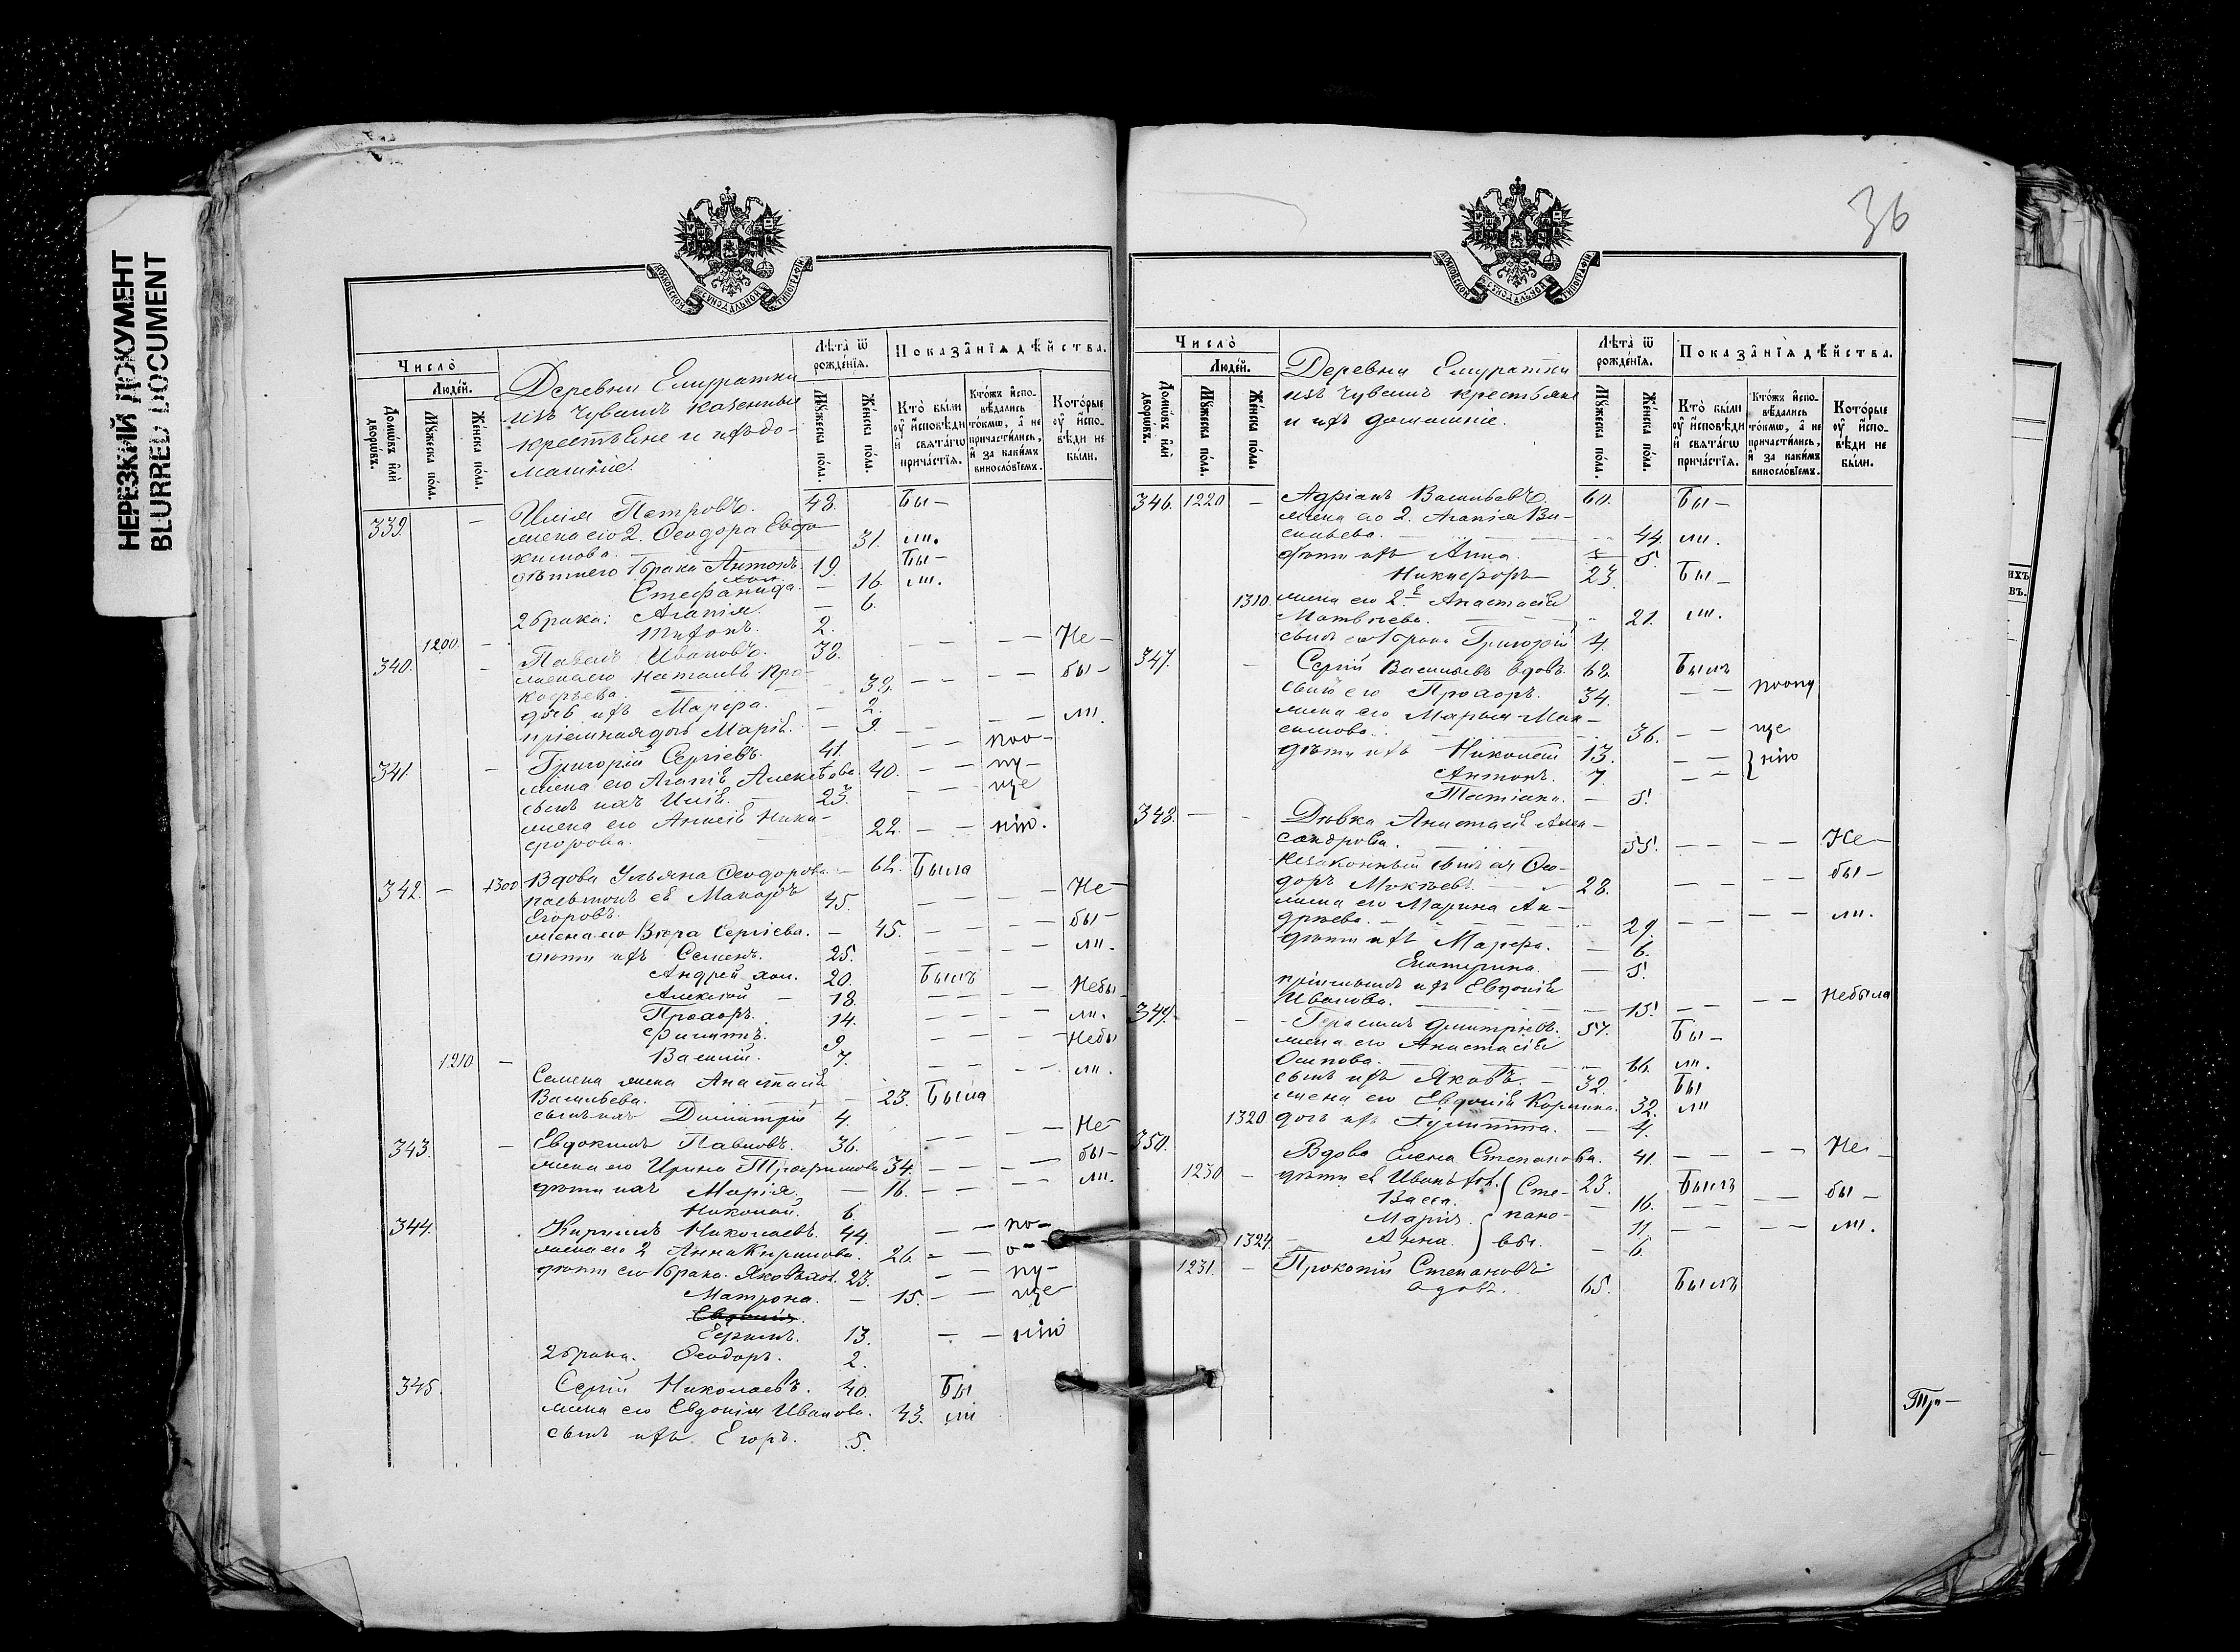 НЕРЕЗКИЙ ДОКУМЕНТ
BLURRED DOCUMENT
Число̀
Домѡ́въ и҆лѝ дворѡ́въ.
Люде́й.
Мꙋ́жеска по́ла.
Же́нска по́ла.
Деревни
изъ Чувашъ казенные
крестьяне и ихъ до-
машніе.
Лѣ́та ѿ рожде́нїѧ.
Мꙋ́жеска по́ла.
Же́нска по́ла.
Показа̑нїѧ дѣ́йства.
Кто̀ бы́ли ᲂу҆ и҆сповѣ́ди и҆ свѧта́гѡ прича́стїѧ.
Кто́жъ и҆сповѣ́дались то́кмѡ, а҆ не причасти́лись, и҆ за каки́мъ винослѡ́вїемъ.
Кото́рые ᲂу҆ и҆сповѣ́ди не бы́ли.
339. Илія Петровъ. 48. Бы-
жена его 2. Ѳеодора Евдо-
кимова. 31. ли.
дѣти его 1 брака Антонъ 19. Бы-
хол.
Стефанида. 16. ли.
2 брака: Агапія. 6.
2.
340. 1200. Павелъ Ивановъ. 38. Не-
жена его Наталія Про-
кофьева. 38. бы-
дочь ихъ Марѳа. 2.
пріемная дочь Марія. 9. ли.
341. Григорій Сергіевъ. 41. по о-
жена его Агапія Алексѣева 40. пу-
сынъ ихъ Илія. 23. ще
жена его Анисія Ники-
форова. 22. нію.
342. 1300 Вдова Ульяна Ѳеодорова 62. Была
пасынокъ ея Макаръ
Егоровъ. 45. Не-
жена его Вѣра Сергіева. 45. бы-
дѣти ихъ Семенъ. 25. ли.
Андрей хол. 20. Былъ
Алексій 18. Небы-
Прохоръ. 14. ли.
Филиппъ. 9 Небы
1210 Василій. 7. ли.
Семена жена Анастасія
Васильева. 23. Была
сынъ ихъ Димитрій 4.
343. Евдокимъ Павловъ. 36. Не
жена его Ирина Трофимова 34. бы-
дѣти ихъ Марія, 16. ли.
Николай. 6
344. Кириллъ Николаевъ. 44. по-
жена его 2 Анна Кирилова. 26. о-
дѣти его 1 брака. Яковъ хол. 23. пу-
Матрона. 15. ще
Евдокія.
13. нію
2 брака. Ѳеодоръ. 2.
345. Сергій Николаевъ. 40. Бы
жена его Евдокія Иванова. 43. ли
сынъ ихъ Егоръ. 5.
36
Число̀
Домѡ́въ и҆лѝ дворѡ́въ.
Люде́й.
Мꙋ́жеска по́ла.
Же́нска по́ла.
Деревни
изъ Чувашъ крестьяне
и ихъ домашніе.
Лѣ́та ѿ рожде́нїѧ.
Мꙋ́жеска по́ла.
Же́нска по́ла.
Показа̑нїѧ дѣ́йства.
Кто̀ бы́ли ᲂу҆ и҆сповѣ́ди и҆ свѧта́гѡ прича́стїѧ.
Кто́жъ и҆сповѣ́дались то́кмѡ, а҆ не причасти́лись, и҆ за каки́мъ винослѡ́вїемъ.
Кото́рые ᲂу҆ и҆сповѣ́ди не бы́ли.
346. 1220 Адріанъ Васильевъ. 60. Бы-
жена его 2. Агапія Ва-
сильева. 44. ли.
дѣти ихъ Анна. 5.
Никифоръ 23. Бы-
1310. жена его 2. Анастасія
Матвѣева. 21. ли.
сынъ его 1 брака Григорій 4.
347. Сергій Васильевъ вдовъ. 62. Былъ
сынъ его Прохоръ. 34. по опу
жена его Марья Мак-
симова. 36. ще
дѣти ихъ Николай 13. нію
Антонъ. 7.
Татіана. 5.
348. Дѣвка Анастасія Алек-
сандрова. 55. Не-
незаконный сынъ ея Ѳео-
доръ Мокѣевъ. 28. бы-
жена его Марина Ан-
дреева. 29. ли.
дѣти ихъ Марѳа. 6.
Екатерина. 5.
Евдокія
Иванова. 15. Небыла
349. Герасимъ Дмитріевъ. 57. Бы-
жена его Анастасія
Осипова. 66. ли.
сынъ ихъ Яковъ. 32. Бы
жена его Евдокія 32. ли
1320 дочь ихъ 4.
350. Вдова Елена Степанова. 41. Не-
1230 дѣти ея Иванъ хол. 23. Былъ
Васса. 16. бы-
Марія. 11. ли.
1324 Анна. 6.
Сте-
пано-
вы.
1231. Прокопій Степановъ
вдовъ. 65. Былъ
Тр-